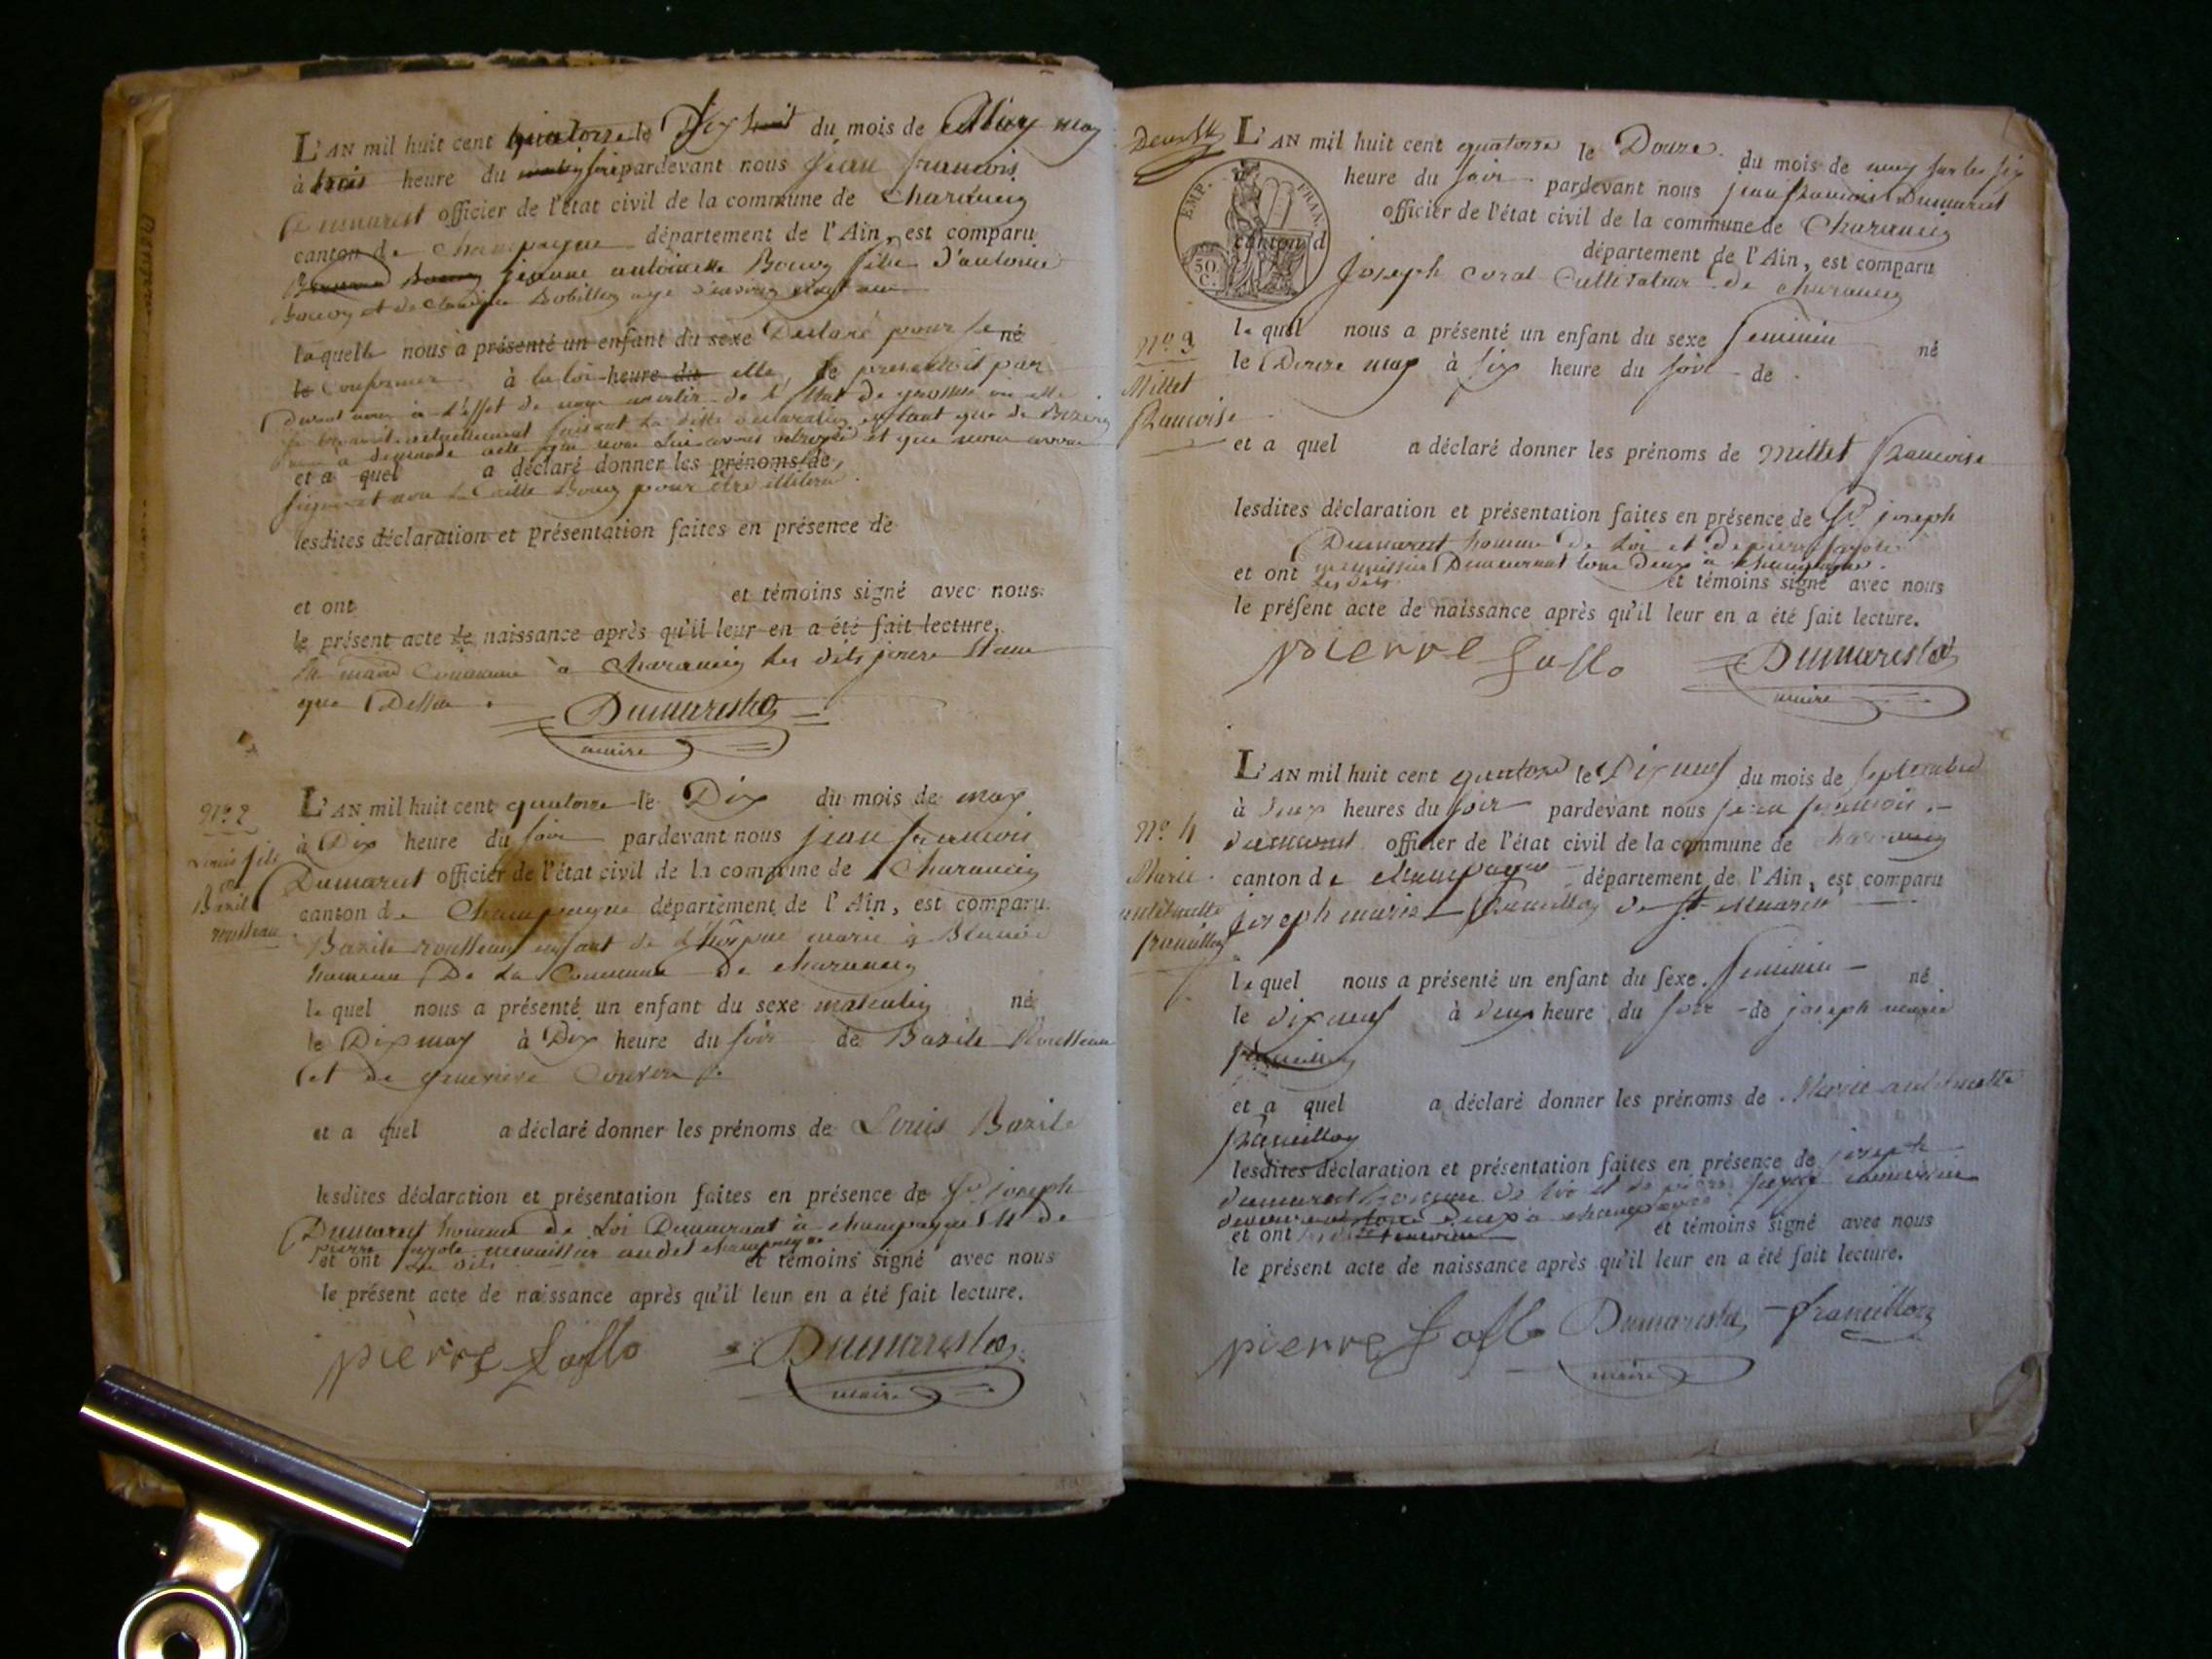 L'AN mil huit cent quatorze le Dix huit du mois de may
à trois heure du soir pardevant nous jean francois
Dumarest officier de l'état civil de la commune de Charancin
canton de Champagne département de l'Ain, est comparu
jeanne antoinette Bouvy fille d'antoine
Bouvy et de Claudine Bobillon agé d'environ vingt ans
laquelle nous a présenté un enfant du sexe Declaré pour se né
le Conformer à la loi heure du elle se presentoit par
Devant nous à l'effet de nous avertir de l'Etat de grossesse ou elle
se trouvoit actuellement faisant la ditte declaration
a demandé acte que nous lui avons octroyé et que nous avons
et a quel a déclaré donner les prénoms de
signé et non la ditte Bouvy pour etre illiterée.
lesdites déclaration et présentation faites en présence de
et ont et témoins signé avec nous
le présent acte de naissance après qu'il leur en a été fait lecture.
commune à Charancin les dits jour et an
que Dessus.
Dumarest
maire
N.o 2
Louis fils
de
Bazile
rousseau
L'AN mil huit cent quatorze le Dix du mois de may
à Dix heure du soir pardevant nous jean francois
Dumarest officier de l'état civil de la commune de Charancin
canton de Champagne département de l'Ain, est comparu
Bazile rousseau enfant de l'hospice marié à
hameau De La Commune de charancin
le quel nous a présenté un enfant du sexe masculin né
le Dix may à Dix heure du soir de Bazile Rousseau
et de genevieve
et a quel a déclaré donner les prénoms de Louis Bazile
lesdites déclaration et présentation faites en présence de Sr joseph
Dumarest homme de Loi Demeurant à champagne et de
pierre menuisier audit champagne
et ont Les dits et témoins signé avec nous
le présent acte de naissance après qu'il leur en a été fait lecture.
pierre Dumarest
maire
L'AN mil huit cent quatorze le Douze du mois de may sur les six
heure du soir pardevant nous jean francois Dumarest
officier de l'état civil de la commune de Charancin
EMP. FRAN.
canton d département de l'Ain, est comparu
50 C.
joseph Cultivateur de charancin
N.o 3
Millet
francoise
le quel nous a présenté un enfant du sexe feminin né
le Douze may à six heure du soir de
et a quel a déclaré donner les prénoms de Millet francoise
lesdites déclaration et présentation faites en présence de Sr joseph
Dumarest homme de Loi et de pierre
menuisier Demeurant tous Deux à champagne.
et ont les dits et témoins signé avec nous
le présent acte de naissance après qu'il leur en a été fait lecture.
pierre Dumarest
maire
N.o 4
Marie
antoinette
francillon
L'AN mil huit cent quatorze le Dix neuf du mois de septembre
à deux heures du soir pardevant nous jean francois
dumarest officier de l'état civil de la commune de charancin
canton de champagne département de l'Ain, est comparu
joseph marie francillon de St Maurice
le quel nous a présenté un enfant du sexe feminin né
le dix neuf à deux heure du soir de joseph marie
francillon
et a quel a déclaré donner les prénoms de Marie antoinette
francillon
lesdites déclaration et présentation faites en présence de joseph
dumarest homme de loi et de pierre menuisier
demeurant tous deux à champagne
et ont et témoins signé avec nous
le présent acte de naissance après qu'il leur en a été fait lecture.
pierre Dumarest francillon
maire